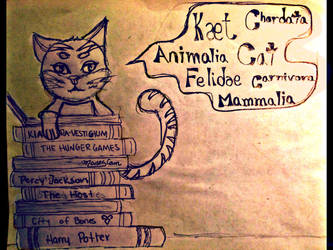 Kæt Chordata
Animalia Cat
Felidae Carnivora
Mammalia
VESTIGIUM
THE HUNGER GAMES
Percy Jackson
The Host
City of Bones
Harry Potter